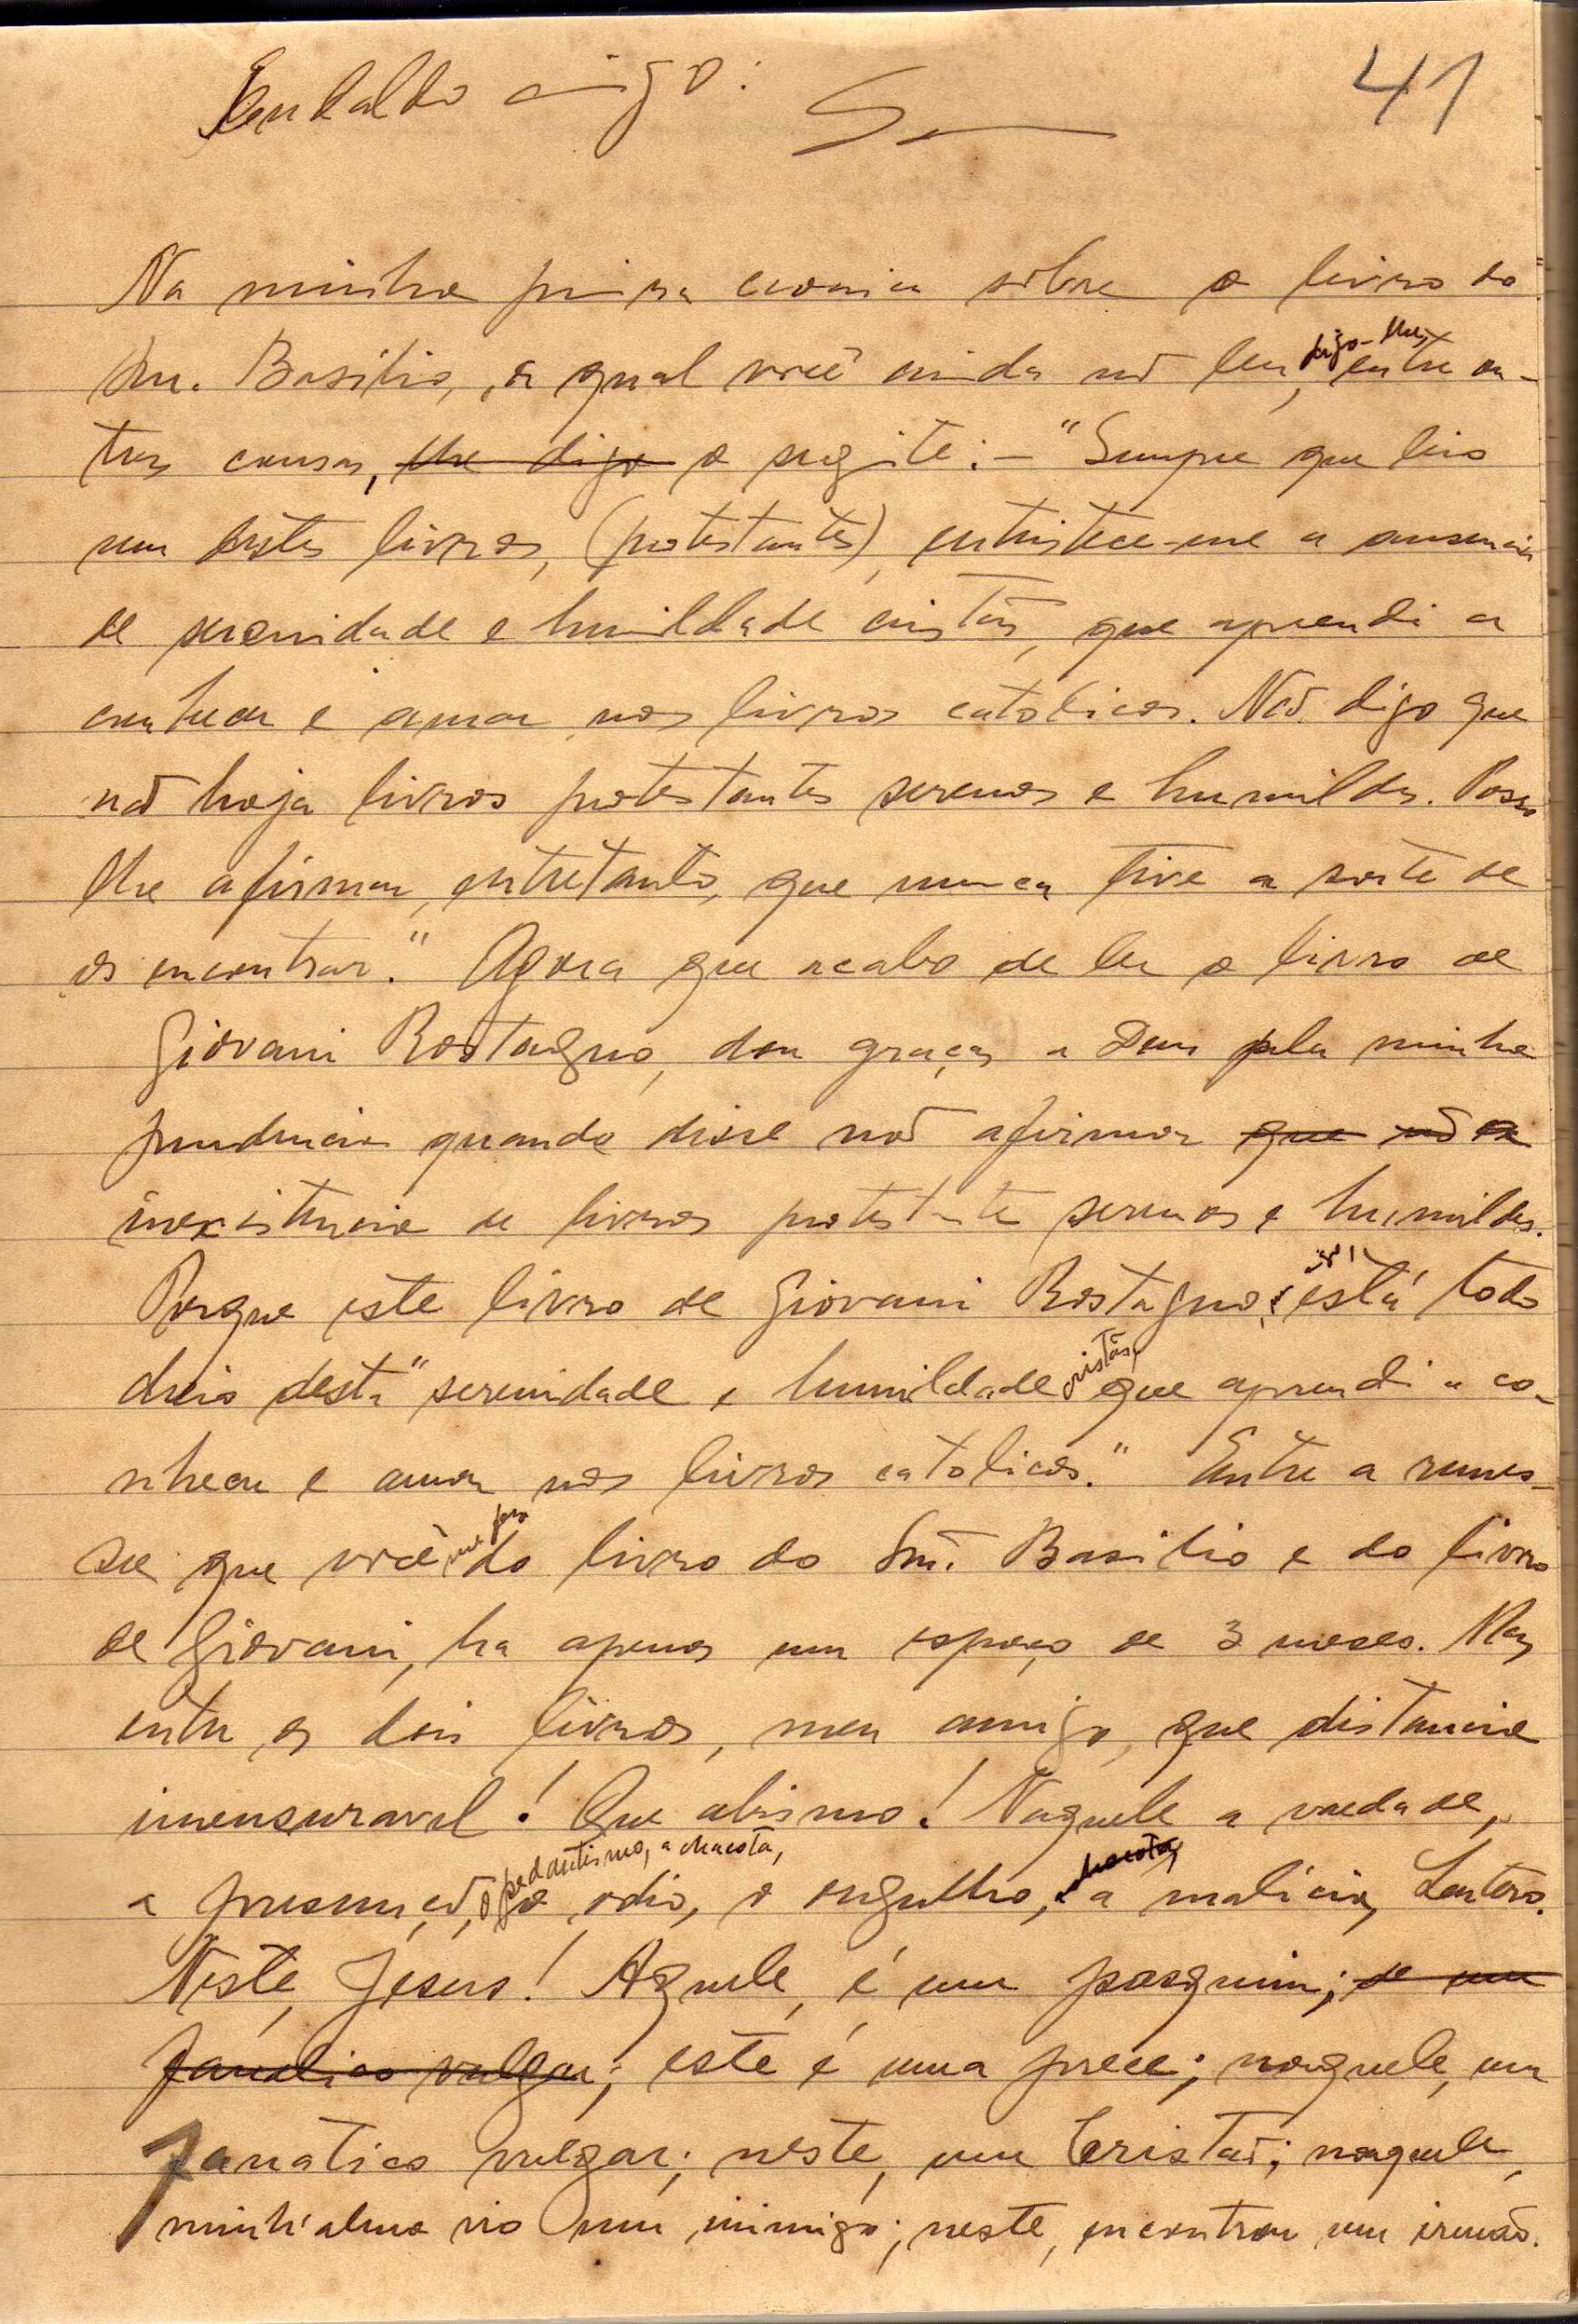 amigo: 41
Na minha primeira cronica sôbre o livro do
Snr. Basilio, a qual você ainda não leu, digo-lhe, entre ou-
tras cousas, lhe digo o seguinte: — "Sempre que leio
um dêstes livros, (protestantes), entristece-me a ausencia
de serenidade e humildade cristãs, que aprendi a
conhecer e amar nos livros catolicos. Não digo que
não haja livros protestantes serenos e humildes. Posso
lhe afirmar, entretanto, que nunca tive a sorte de
os encontrar." Agora que acabo de ler o livro de
Giovani Rostagno, dou graças a Deus pela minha
prudencia quando disse não afirmar que não a
inexistencia de livros protestante serenos e humildes.
Porque êste livro de Giovani Rostagno, está todo
cheio desta "serenidade e humildade cristãs, que aprendi a co-
nhecer e amar nos livros catolicos." Entre a remes-
sa que você me fez do livro do Snr. Basilio e do livro
de Giovani, ha apenas um espaço de 3 meses. Mas
entre os dois livros, meu amigo, que distancia
imensuravel! Que abismo! Naquele a vaedade,
a presunção, o pedantismo, a chacota, o odio, o orgulho, a chacota, a malicia, Lutero.
Nêste, Jesus! Aquele, é um pasquim; de um
fanatico vulgar; este é uma prece; naquele, um
fanatico vulgar; neste, um Cristão; naquele,
minh'alma vio um inimigo; neste, encontrou um irmão.